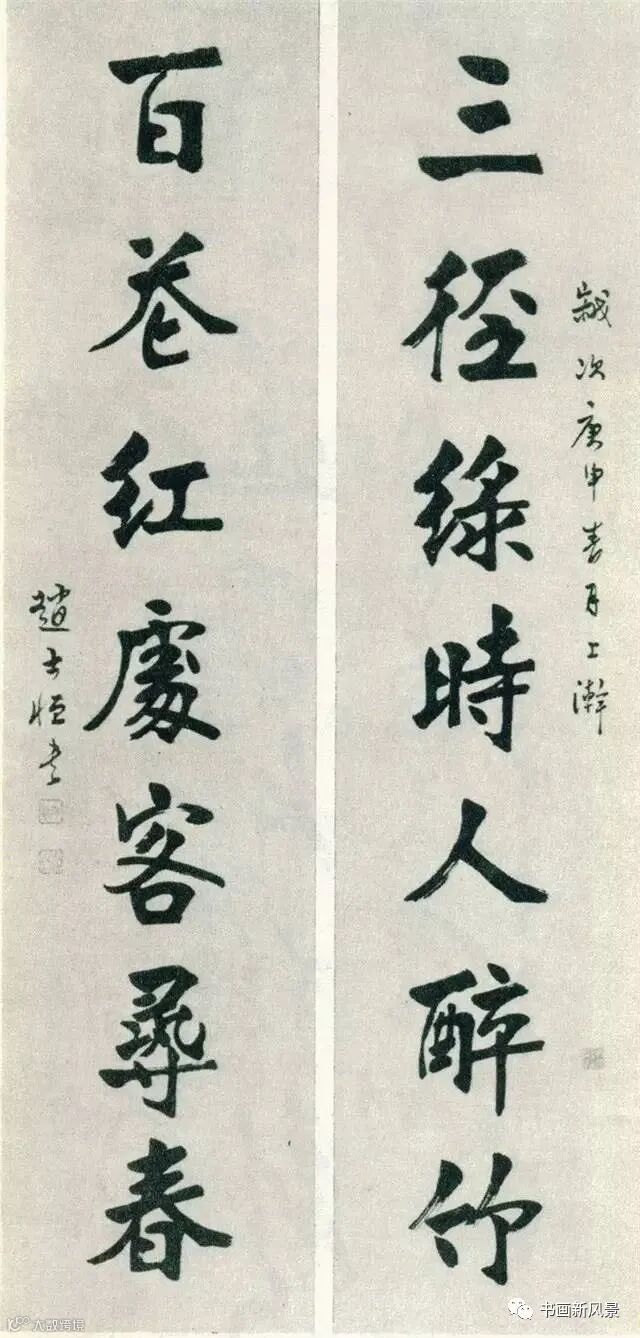 歲次庚申春月上澣
三徑綠時人醉竹
百巷紅處客尋春
趙士恒書
书画新风景
大数跨境